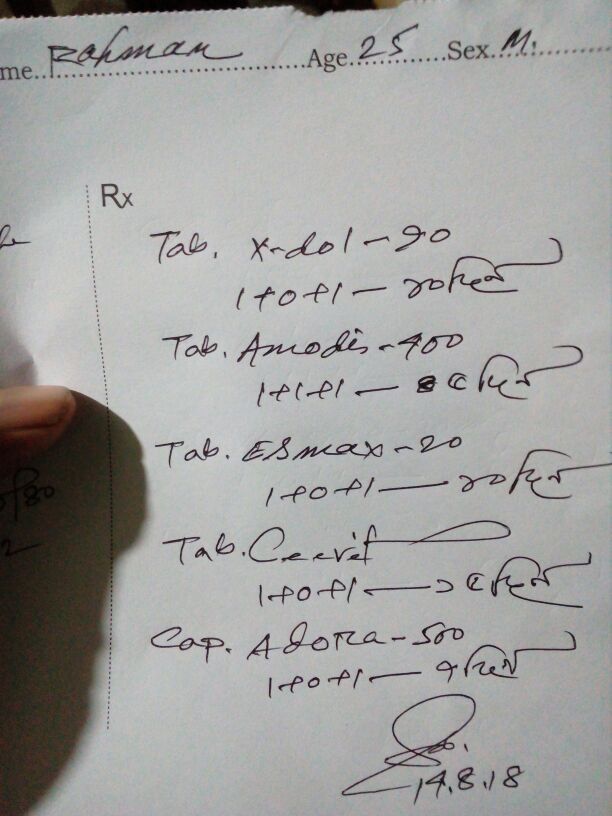 me.. Rahman Age 25 Sex. M.
Rx
Tab. X-dol-90
1+0+1 — ১০ দিন
Tab. Amodis-400
1+1+1 — ৫ দিন
Tab. Esmax-20
1+0+1 — ১০ দিন
Tab. Ceevit
1+0+1 — ১৫ দিন
Cap. Adora-500
1+0+1 — ৭ দিন
14.8.18